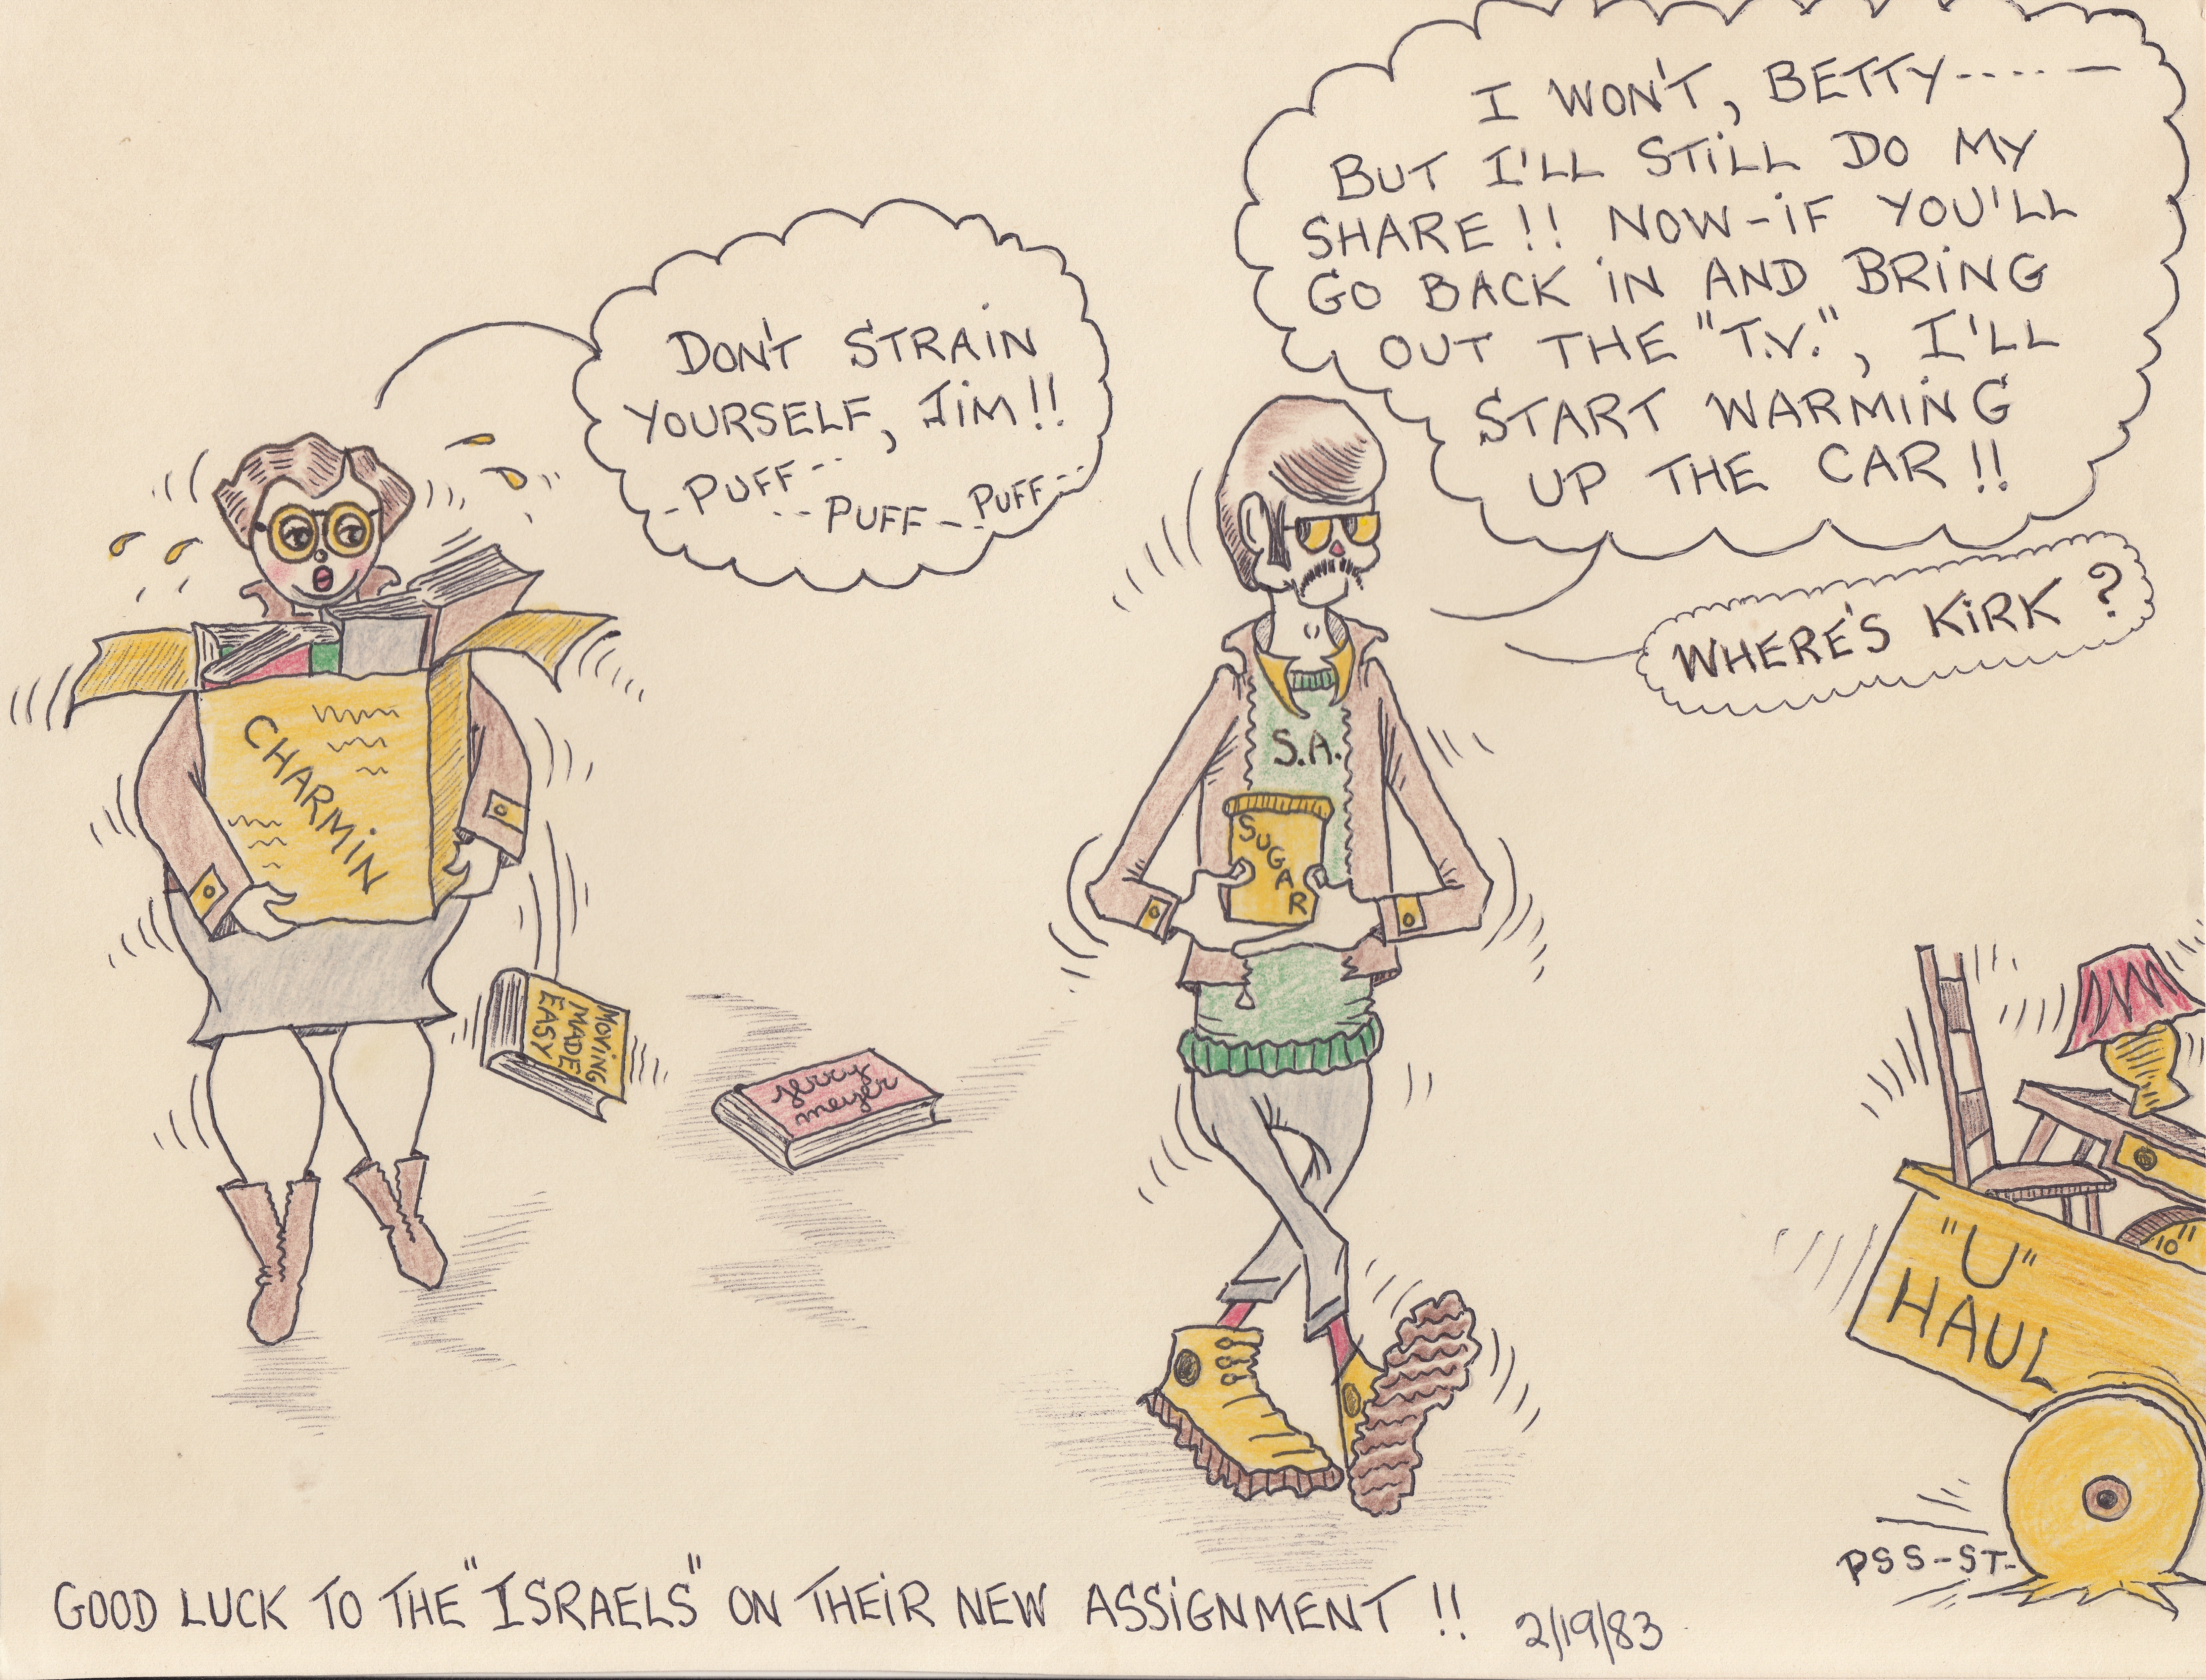 I WON'T, BETTY-----
BUT I'LL STILL DO MY
SHARE!! NOW-IF YOU'LL
GO BACK IN AND BRING
OUT THE "T.V.", I'LL
START WARMING
UP THE CAR!!
DON'T STRAIN
YOURSELF, JIM!!
-PUFF--
--PUFF-- PUFF--
WHERE'S KIRK?
CHARMIN
S.A.
SUGAR
MOVING
MADE
EASY
jerry
meyer
"U"
HAUL
10"
PSS-ST-
GOOD LUCK TO THE "ISRAELS" ON THEIR NEW ASSIGNMENT!!
2/19/83